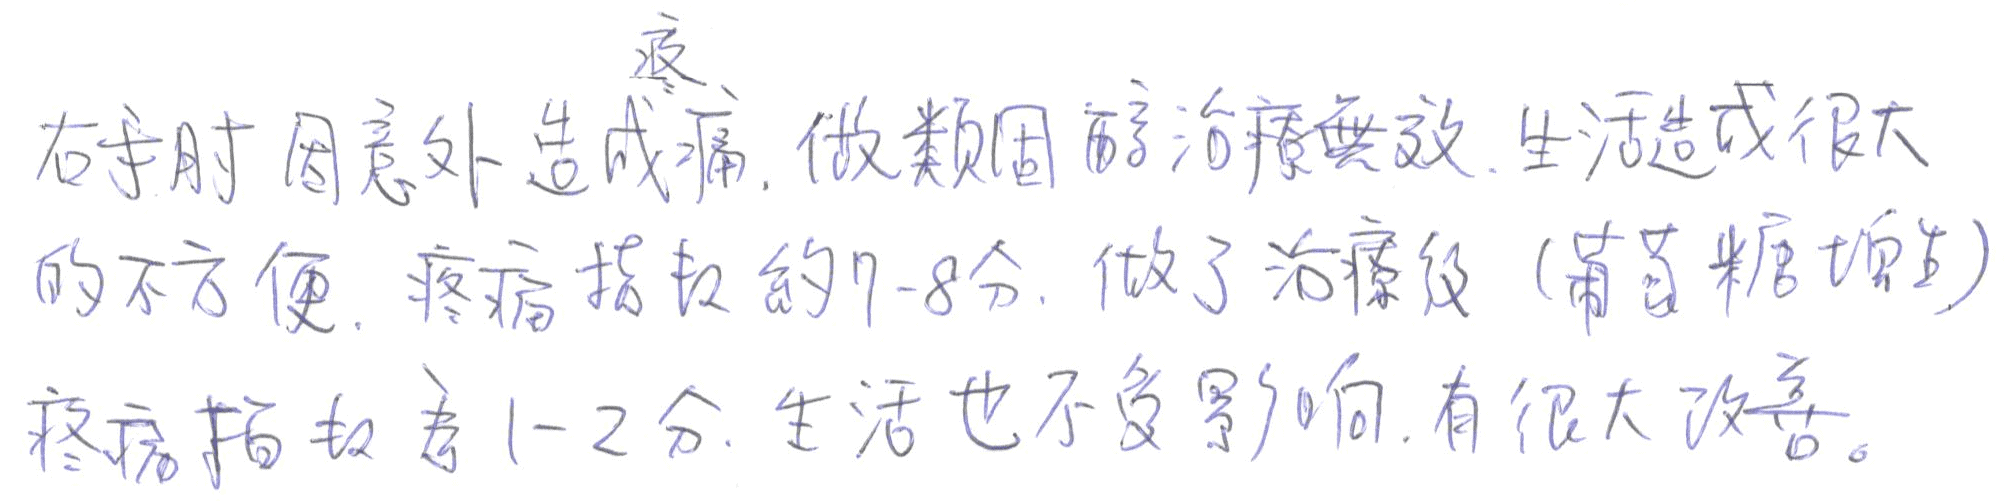 右手肘因意外造成疼痛.做類固醇治療無效.生活造成很大
的不方便.疼痛指数約7-8分.做了治療後(葡萄糖增生)
疼痛指数為1-2分.生活也不受影响.有很大改善。